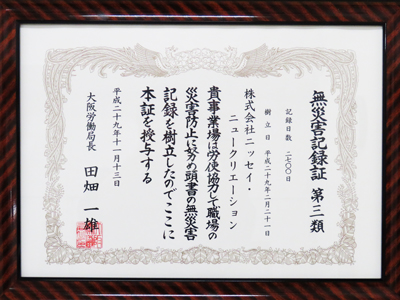 無災害記録証 第三類
記録日数 二七〇〇日
樹立日 平成二十九年二月二十一日
株式会社ニッセイ・
ニュークリエーション
貴事業場は労使協力して職場の
災害防止に努め頭書の無災害
記録を樹立したのでここに
本証を授与する
平成二十九年十一月十三日
大阪労働局長 田畑 一雄